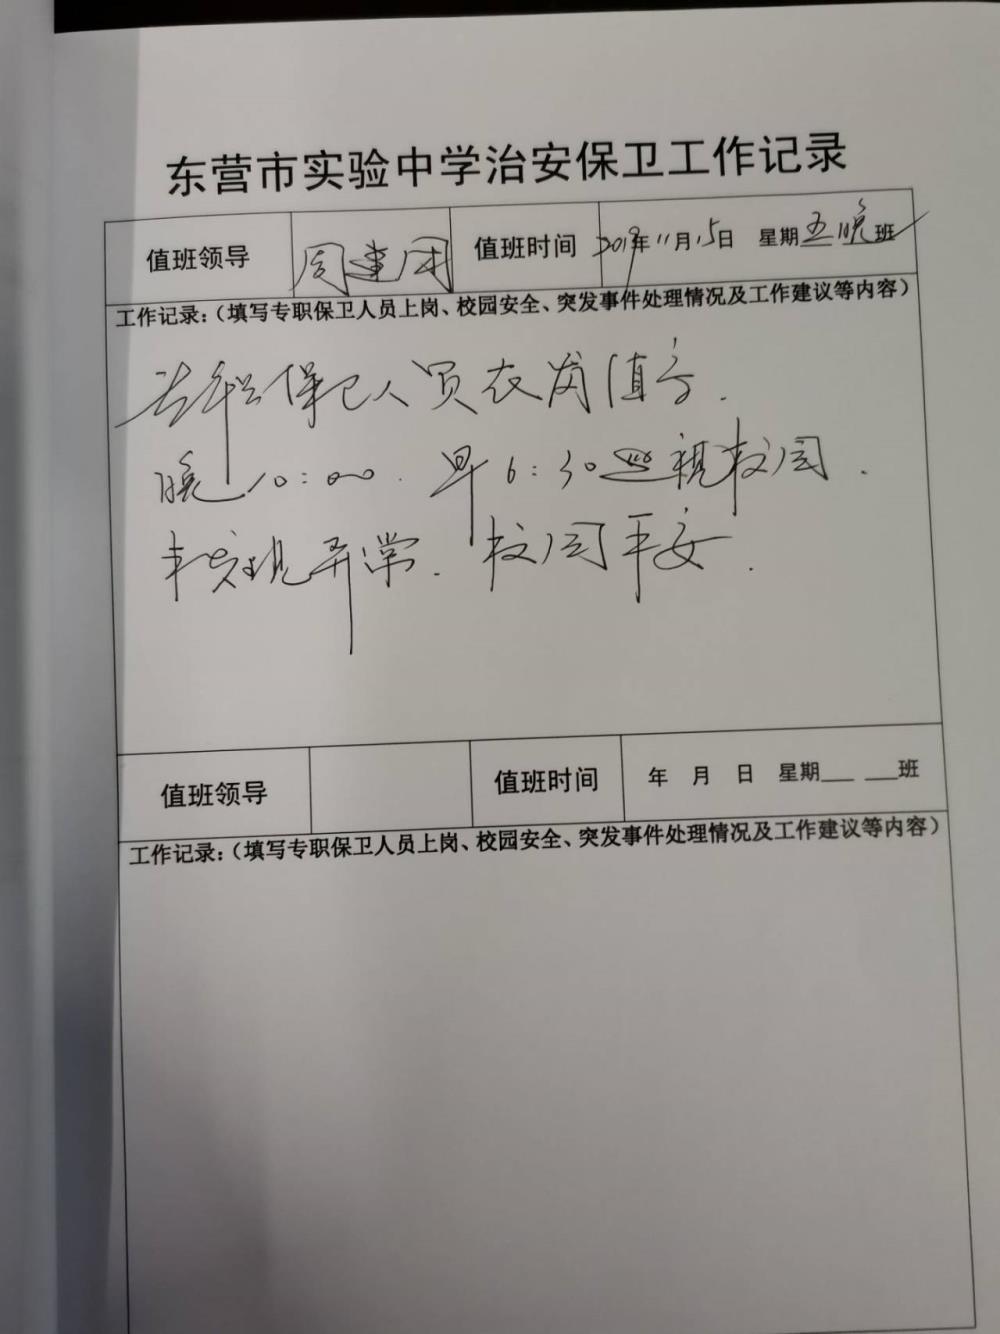 东营市实验中学治安保卫工作记录
值班领导 周建国 值班时间 2019年11月15日 星期五晚班
工作记录：（填写专职保卫人员上岗、校园安全、突发事件处理情况及工作建议等内容）
专职保卫人员在岗值守.
晚10:00. 早6:30巡视校园.
未发现异常. 校园平安.
值班领导 值班时间 年 月 日 星期___ ___班
工作记录：（填写专职保卫人员上岗、校园安全、突发事件处理情况及工作建议等内容）